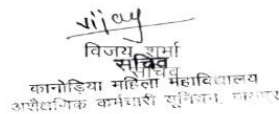 vijay
विजय शर्मा
सचिव
सचिव
कानोड़िया महिला महाविद्यालय
अशैक्षणिक कर्मचारी यूनियन, जयपुर